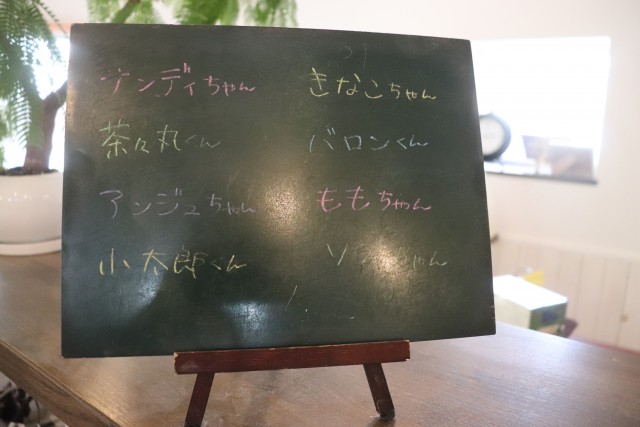 サンディちゃん
茶々丸くん
アンジュちゃん
小太郎くん
きなこちゃん
バロンくん
ももちゃん